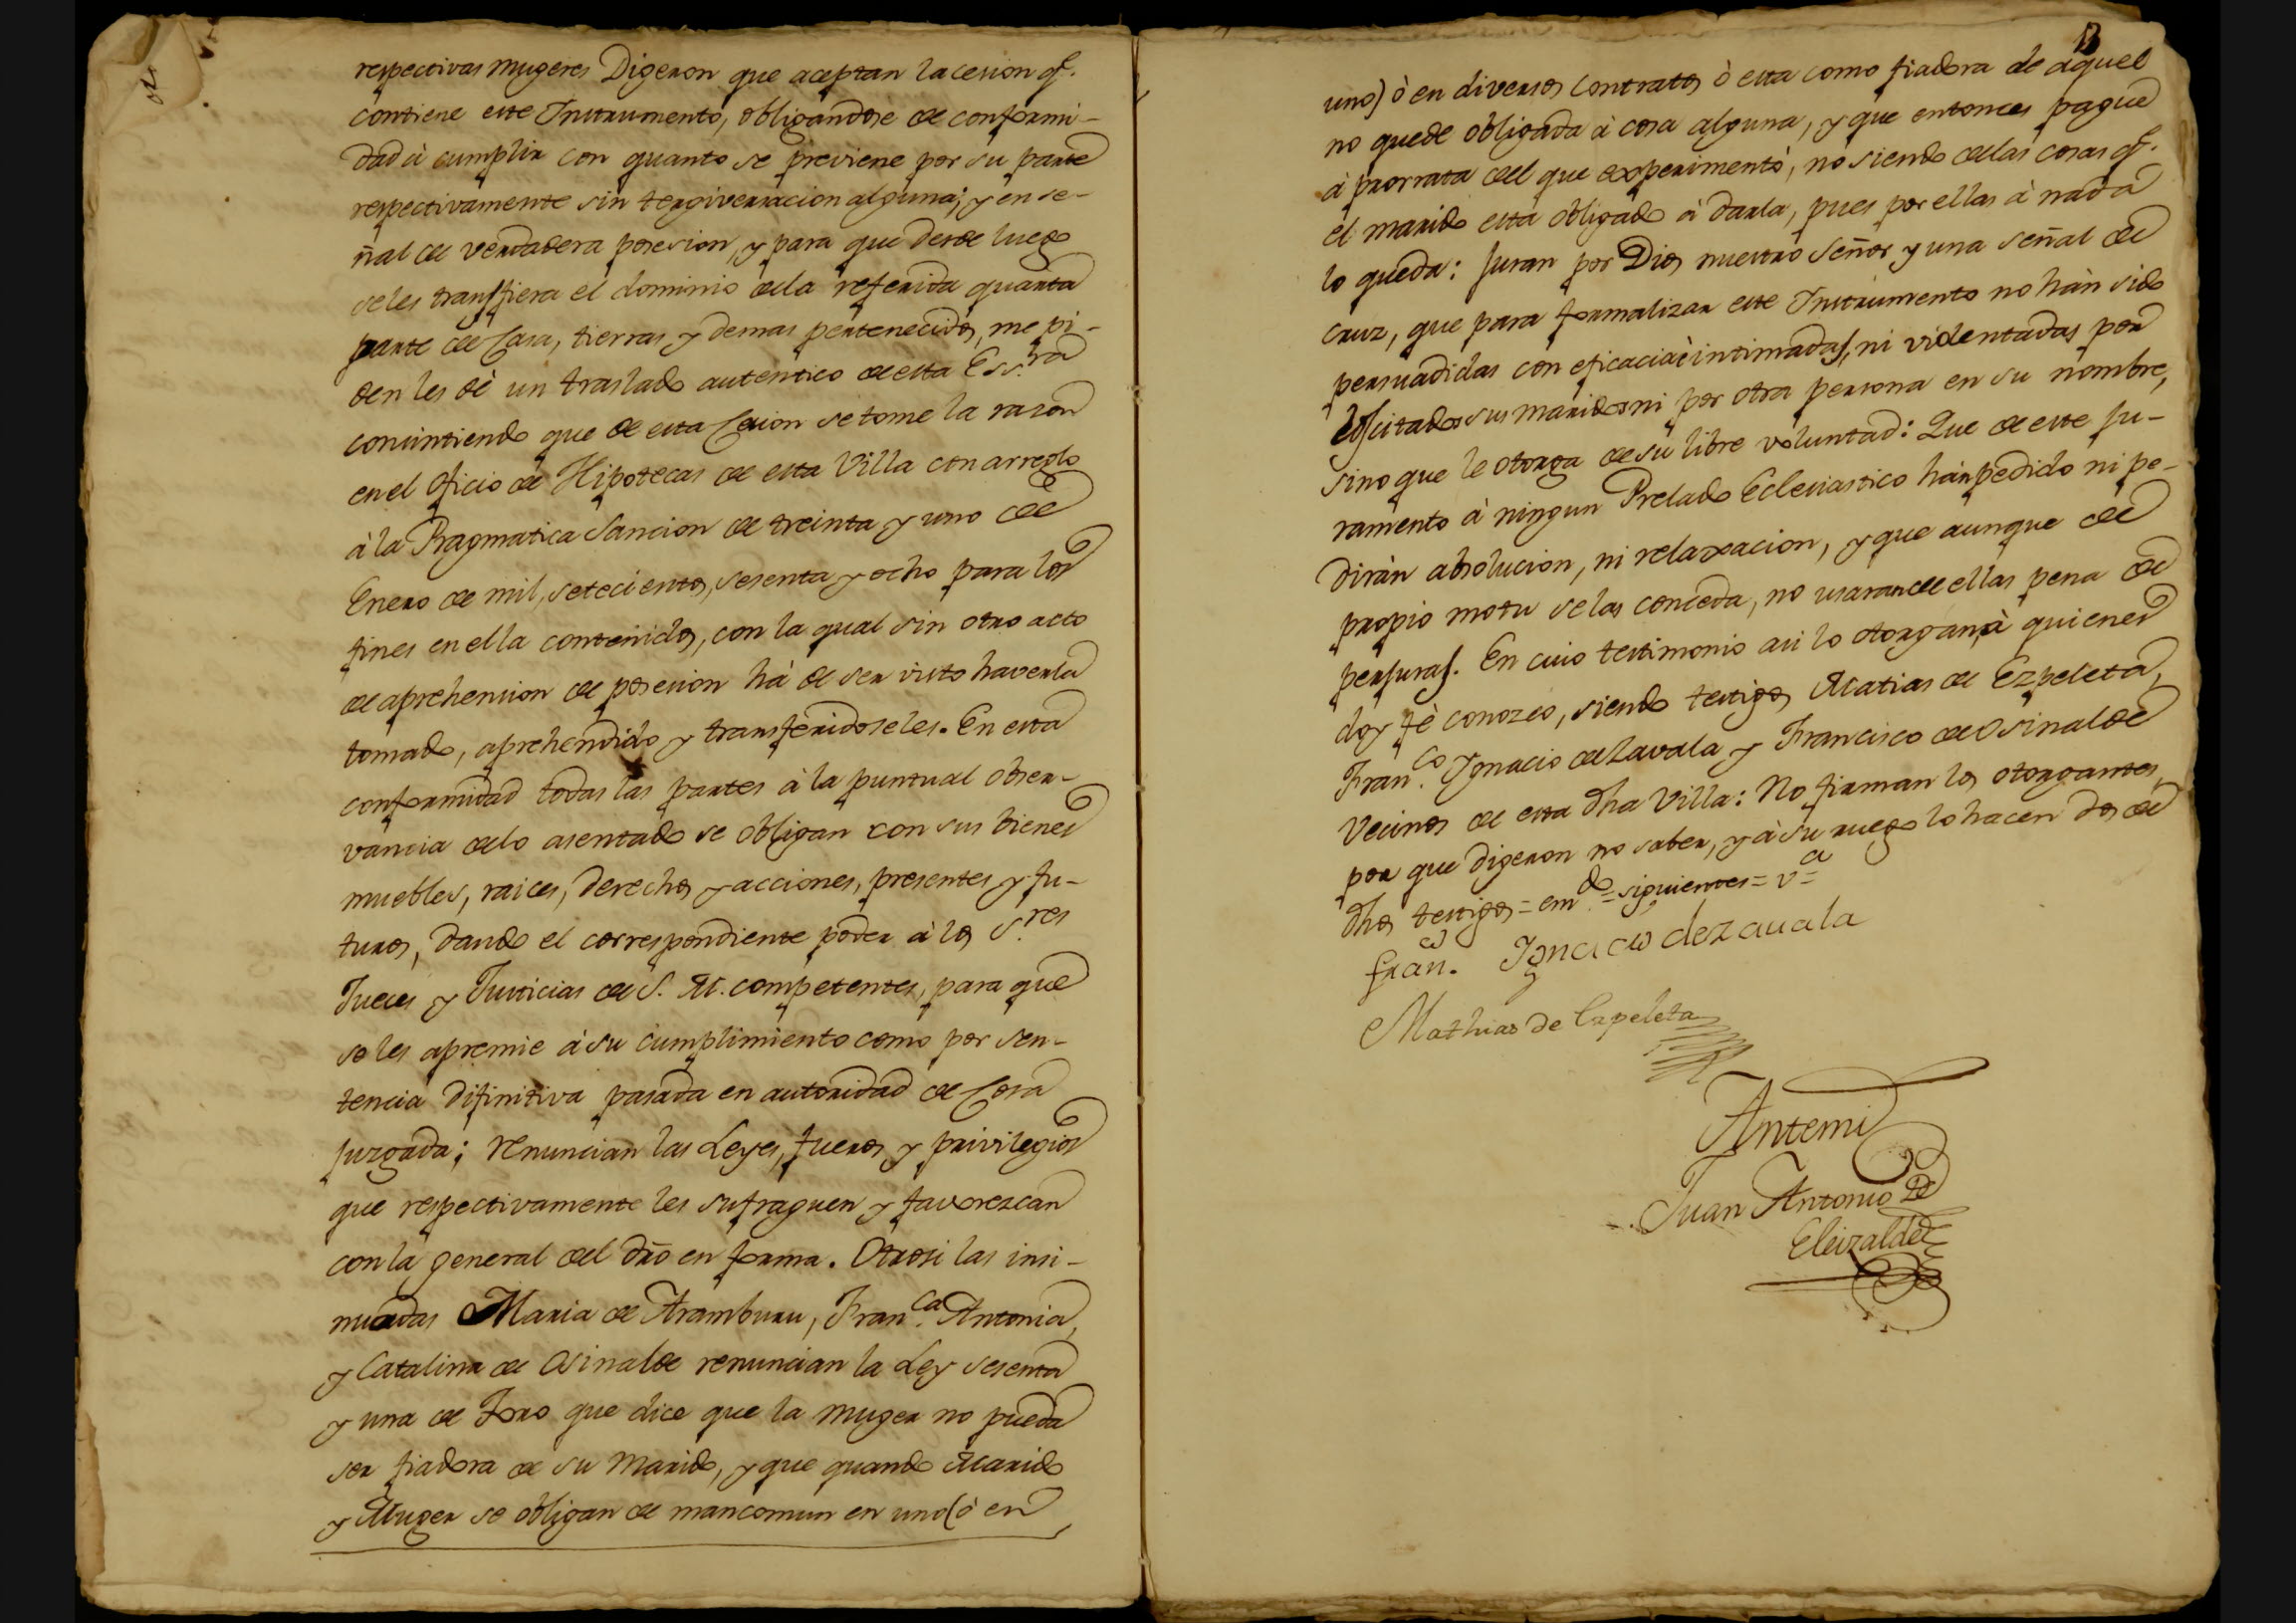 respectivas mugeres Digeron que aceptan la cesion q.
contiene este Instrumento, obligandose de conformi-
dad à cumplir con quanto se previene por su parte
respectivamente sin tergiversacion alguna; y en se-
ñal de verdadera posesion, y para que desde luego
seles transfiera el dominio dela referida quarta
parte de Casa, tierras, y demas pertenecidos, me pi-
den les dè un traslado autentico de esta Ess.ra
consintiendo que de esta Cesion se tome la razon
en el Oficio de Hipotecas de esta Villa con arreglo
à la Pragmatica Sancion de treinta y uno de
Enero de mil, setecientos, sesenta y ocho para los
fines en ella contenidos, con la qual sin otro acto
de aprehension de posesion hà de ser visto haverla
tomado, aprehendido y transferidoseles. En esta
conformidad todas las partes à la puntual obser-
vancia delo asentado se obligan con sus bienes
muebles, raices, derechos y acciones, presentes y fu-
turos, dando el correspondiente poder à los S.res
Jueces y Justicias de S. M. competentes, para que
se les apremie à su cumplimiento como por sen-
tencia difinitiva pasada en autoridad de Cosa
juzgada; renuncian las Leyes, fueros y privilegios
que respectivamente les sufraguen y favorezcan
con la general del dro en forma. Otrosi las insi-
nuadas Maria de Aramburu, Fran.ca Antonia,
y Catalina de Osinalde renuncian la Ley sesenta
y una de Toro que dice que la muger no pueda
ser fiadora de su Marido, y que quando Marido
y Muger se obligan de mancomun en uno (ò en
13
uno) ò en diversos Contratos ò esta como fiadora de aquel
no quede obligada à cosa alguna, y que entonces pague
à prorrata del que experimentò, no siendo delas cosas q.
el marido està obligado à darla, pues por ellas à nada
lo queda: Juran por Dios nuestro Señor y una señal de
cruz, que para formalizar este Instrumento no hàn sido
persuadidas con eficacia è intimadas, ni violentadas por
los citados sus maridos ni por otra persona en su nombre,
sino que le otorga de su libre voluntad: Que de este Ju-
ramento à ningun Prelado Eclesiastico hàn pedido ni pe-
diràn absolucion, ni relaxacion, y que aunque de
propio motu se las conceda, no usaran de ellas pena de
perjuras. En cuio testimonio asi lo otorgan, à quienes
doy fè conozco, siendo testigos Matias de Ezpeleta,
Fran.co Ygnacio de Zavala y Francisco de Osinalde
Vecinos de esta dha Villa: No firman los otorgantes,
por que digeron no saber, y à su ruego lo hacen dos de
dhos testigos = em.do = siguientes = v.a =
fran.co Ygnacio de zauala
Mathias de Ezpeleta
Antemi
Juan Antonio de
Eleizalde